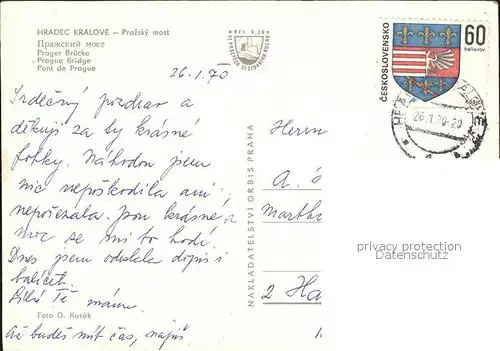 HRADEC KRÁLOVÉ – Pražský most
Пражский мост
Prager Brücke
Prague Bridge
Pont de Prague
Kčs 0,30
26.1.70
Srdečný pozdrav a
děkuji za ty krásné
fotky. Náhodou jsem
nic nepoškodila ani
nepořezala. Jsou krásné a
moc se mi to hodí.
Dnes jsem odeslala dopis i
balíček.
Líbá Tě máma
Foto O. Kusák
Až budeš mít čas, napiš
NAKLADATELSTVÍ ORBIS PRAHA
ČESKOSLOVENSKO
60
halierov
26.1.70-20
Herrn
A.
Martha
2 Ha
privacy protection
Datenschutz